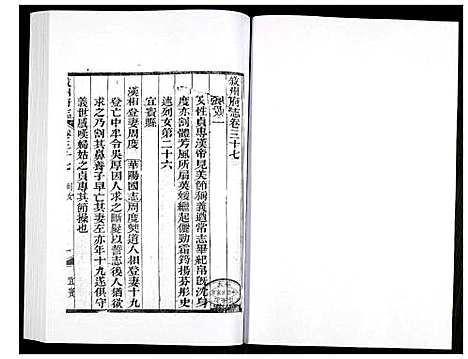 敘州府志卷三十七
列女一
笑性貞專漢帝見美節稱義道常志畢紀帛旣沈身
度亦割體芳風所扇英媛繼起儷勁霜筠揚芬彤史
述列女第二十六
宜賓縣
漢相登妻周度 華陽國志周度僰道人相登妻十九
登亡中牟令吳厚因人求之斷髮以誓志後人猶欲
求之乃割其鼻養子早亡其妻左亦年十九遂俱守
義世感嘆婦姑之貞專其節操也
敘州府志 卷三十七 列女
一
宜賓